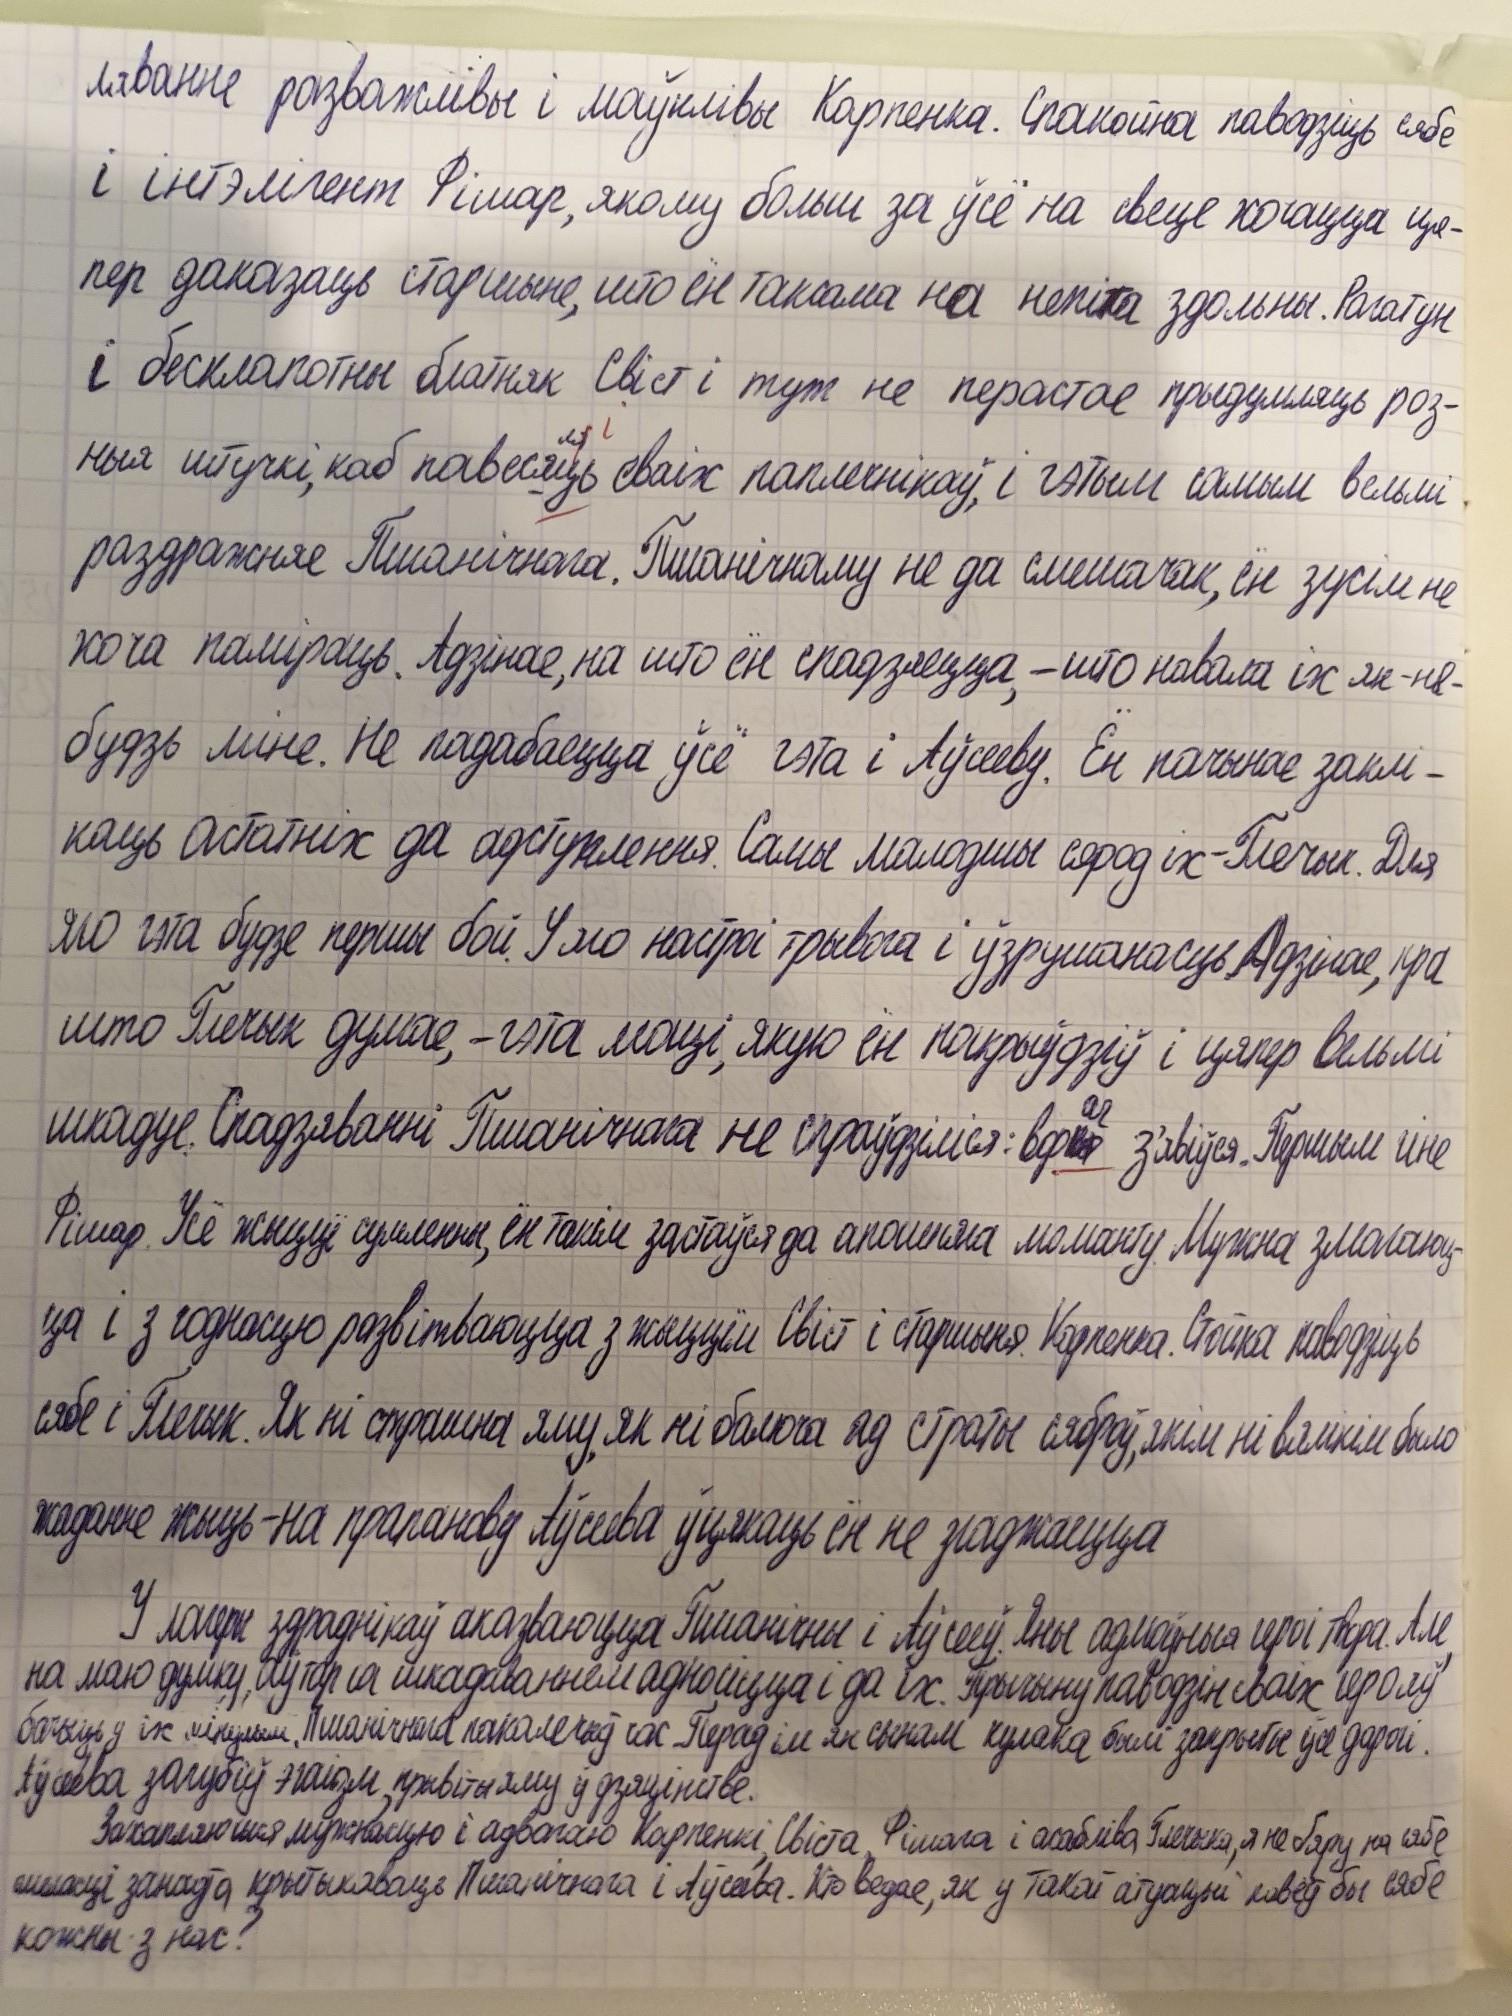 ляванне разважлівы і маўклівы Карпенка. Спакойна паводзіць сябе
і інтэлігент Фішар, якому больш за ўсё на свеце хочацца ця-
пер даказаць старшыне, што ён таксама на нешта здольны. Рагатун
і бесклапотны блатняк Свіст і тут не перастае прыдумляць роз-
ныя штучкі, каб павесяліць сваіх паплечнікаў, і гэтым самым вельмі
раздражняе Пшанічнага. Пшанічнаму не да смешачак, ён зусім не
хоча паміраць. Адзінае, на што ён спадзяецца, – што навала іх як-не-
будзь міне. Не падабаецца ўсё гэта і Аўсееву. Ён пачынае заклі-
каць астатніх да адступлення. Самы малодшы сярод іх - Глечык. Для
яго гэта будзе першы бой. У яго настроі трывога і ўзрушанасць. Адзінае, пра
што Глечык думае, – гэта маці, якую ён пакрыўдзіў і цяпер вельмі
шкадуе. Спадзяванні Пшанічнага не спраўдзіліся: вораг з'явіўся. Першым гіне
Фішар. Усё жыццё сумленны, ён такім застаўся да апошняга моманту. Мужна змагаюц-
ца і з годнасцю развітваюцца з жыццём Свіст і старшыня Карпенка. Стойка паводзіць
сябе і Глечык. Як ні страшна яму, як ні балюча ад страты сяброў, якім ні вялікім было
жаданне жыць – на прапанову Аўсеева ўцякаць ён не згаджаецца
У лагеры здраднікаў аказваюцца Пшанічны і Аўсееў. Яны адмоўныя героі твора. Але,
на маю думку, аўтар са шкадаваннем адносіцца і да іх. Прычыну паводзін сваіх герояў
бачыць у іх мінулым. Пшанічнага пакалечыў час. Перад ім як сынам кулака былі закрыты ўсе дарогі.
Аўсеева загубіў эгаізм, прывіты яму ў дзяцінстве.
Захапляючыся мужнасцю і адвагаю Карпенкі, Свіста, Фішара і асабліва Глечыка, я не бяру на сябе
смеласці занадта крытыкаваць Пшанічнага і Аўсеева. Хто ведае, як у такой сітуацыі павёў бы сябе
кожны з нас?